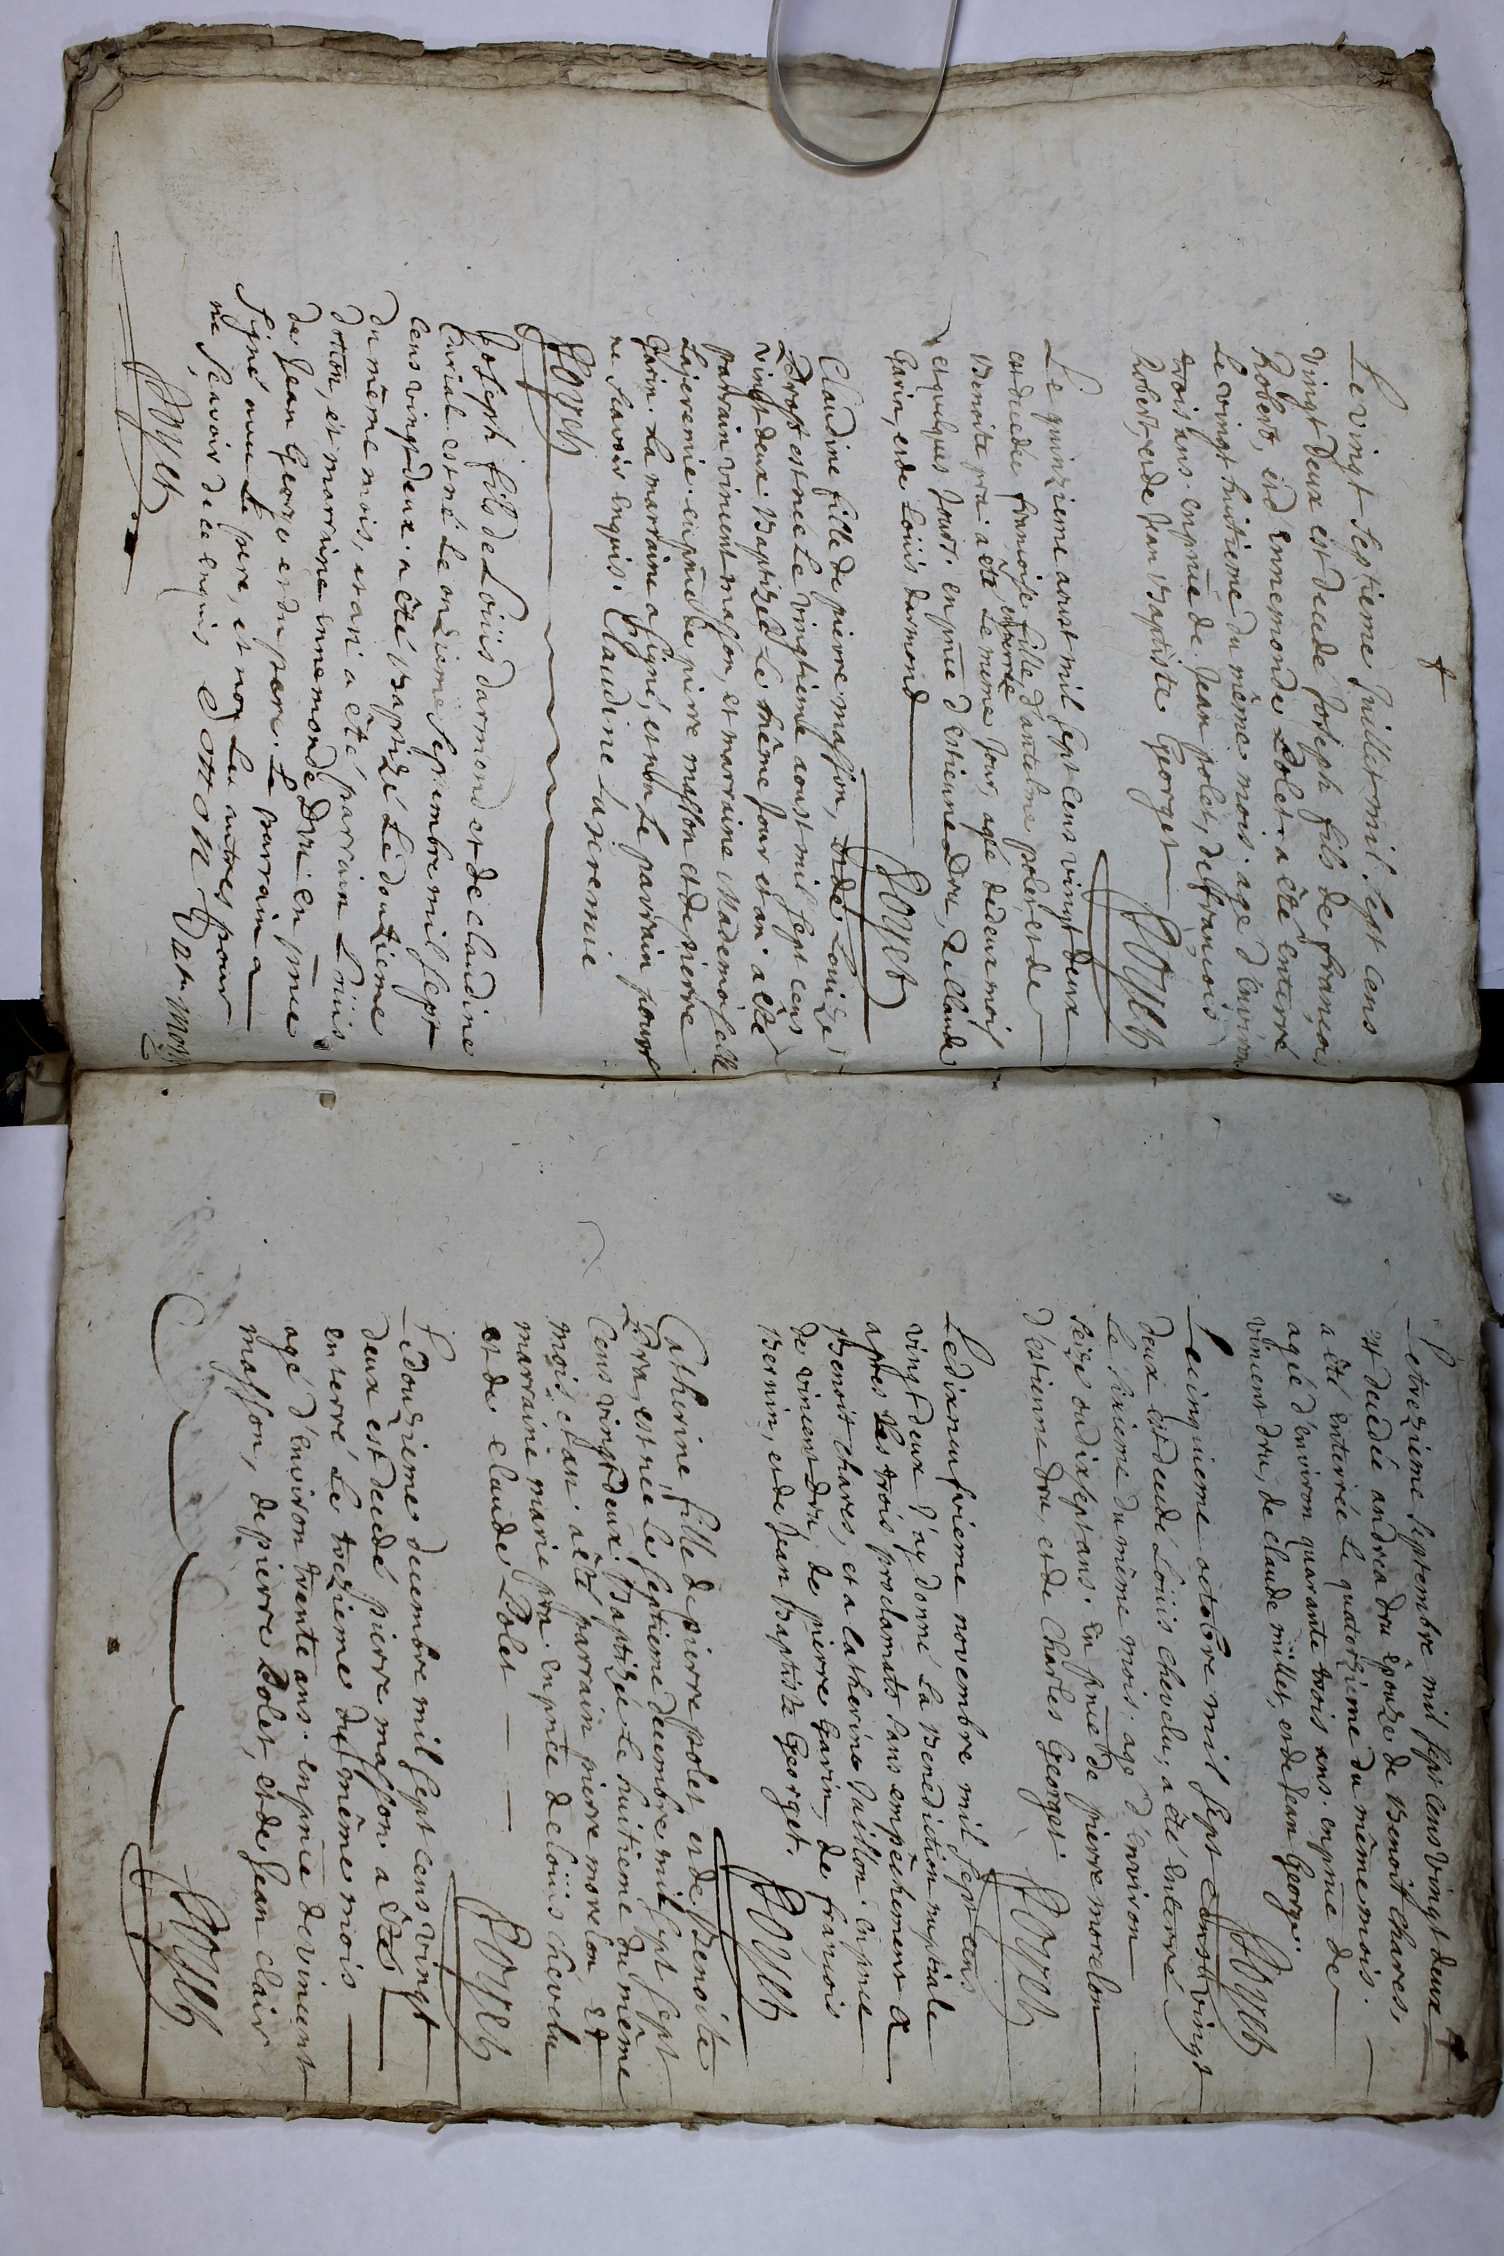 Le vingt septieme Juillet mil sept cens
vingt deux est decedé Joseph fils de françois
Robert, et d'ennemonde Polet a èté enterré
Le vingt huitieme du même mois. agé d'environ
trois ans enpn̄ce de Jean polet, de françois
Robert, et de Jean Baptiste Georget
Poyet
Le quinzieme aoust mil sept cens vingt deux
est decedée françoise fille d'antelme polet, et de
Benoite pra. a èté enterrée Le même Jour, agé de deux mois
et quelques Jours. enpn̄ce d'estienne Dru, de Claude
Garin, et de Loüis darmond
Poyet
Claudine fille de pierre masson, et de Louize
Drost est neé Le vingtieme aoust mil sept cens
vingt deux. Baptizeé Le même Jour et an. a èté
parrain vincent masson, et marraine Mademoiselle
Lajeremie. enpn̄ce de pierre masson et de pierre
Garin. La marraine a signé, et non Le parrain pour
ne scavoir enquis. Claudine Lajeremie
Poyet
Joseph fils de Loüis darmond et de claudine
Curial est né Le onzieme septembre mil sept
cens vingt deux. a èté Baptizé Le douzieme
du même mois, et an. a èté parrain Loüis
dron, et marraine ennemonde Dru. en pn̄ce
de Jean George et du pere. Le parrain a
signé avec Le pere, et non Les autres pour
ne scavoir de ce enquis
Poyet
Le trezieme septembre mil sept cens vingt deux
est decedée andrea dru èpouze de Benoit chares,
a èté enterrée Le quatorzieme du même mois.
ageé d'environ quarante trois ans. enpn̄ce de
vincent dru, de claude millet, et de Jean George.
Poyet
Le cinquieme octobre mil sept cens vingt
deux est decedé Loüis chevelu, a èté enterré
Le sixieme du même mois. age d'environ
seize ou dixsept ans. en pn̄ce de pierre morelon
d'estienne dru, et de Charles Georget.
Poyet
Le dixneufvieme novembre mil sept cens
vingt deux J'ay donné La Benediction nuptiale
apres Les trois proclamats sans empêchement a
Benoit chares, et a catherine Juillon. en pn̄ce
de vincent dru, de pierre Garin, de francois
Bernin, et de Jean Baptiste Georget.
Poyet
Catherine fille de pierre polet, et de Benoite
Pra, est née Le septieme decembre mil sept
cens vingt deux. Baptizée Le huitieme du même
mois et an. a èté parrain pierre morelon et
marraine marie pra. enpn̄ce de Loüis chevelu
et de claude Polet
Poyet
Le douzieme decembre mil sept cens vingt
deux est decedé pierre masson. a èté
enterré Le trezieme du même mois
agé d'environ trente ans. enpn̄ce de vincent
masson, de pierre Polet, et de Jean clair
Poyet